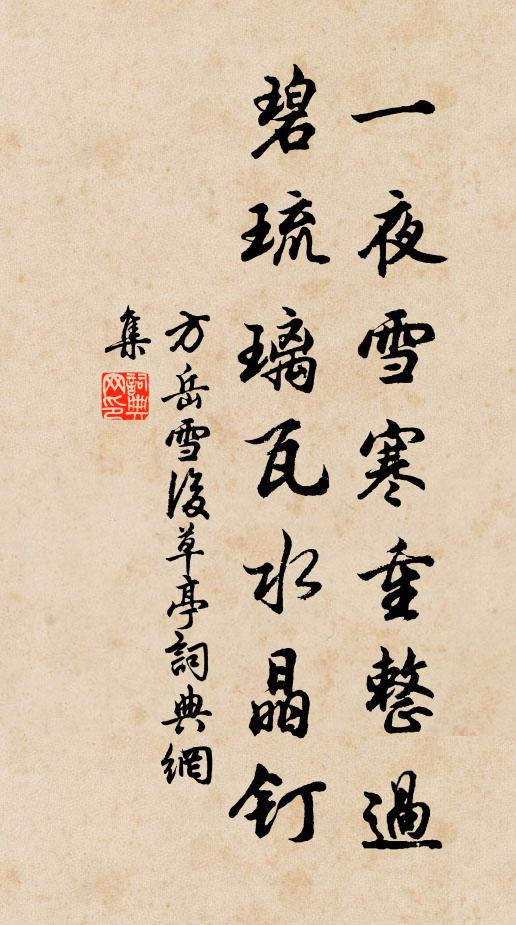 一夜雪寒重整過
碧琉璃瓦水晶釘
方岳雪後草亭詞典網
集
詞典
网印